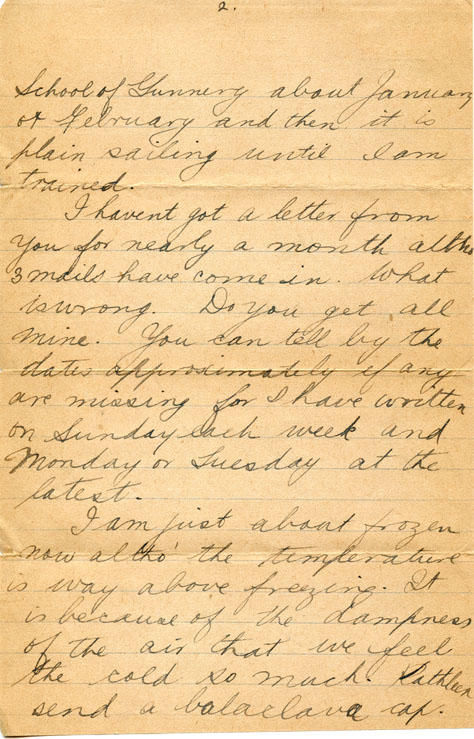 2.
School of Gunnery about January
or February and then it is
plain sailing until I am
trained.
I havent got a letter from
you for nearly a month altho
3 mails have come in. What
is wrong. Do you get all
mine. You can tell by the
dates approximately if any
are missing for I have written
on Sunday each week and
Monday or Tuesday at the
latest.
I am just about frozen
now altho' the temperature
is way above freezing. It
is because of the dampness
of the air that we feel
the cold so much. Kathleen
send a balaclava cap.